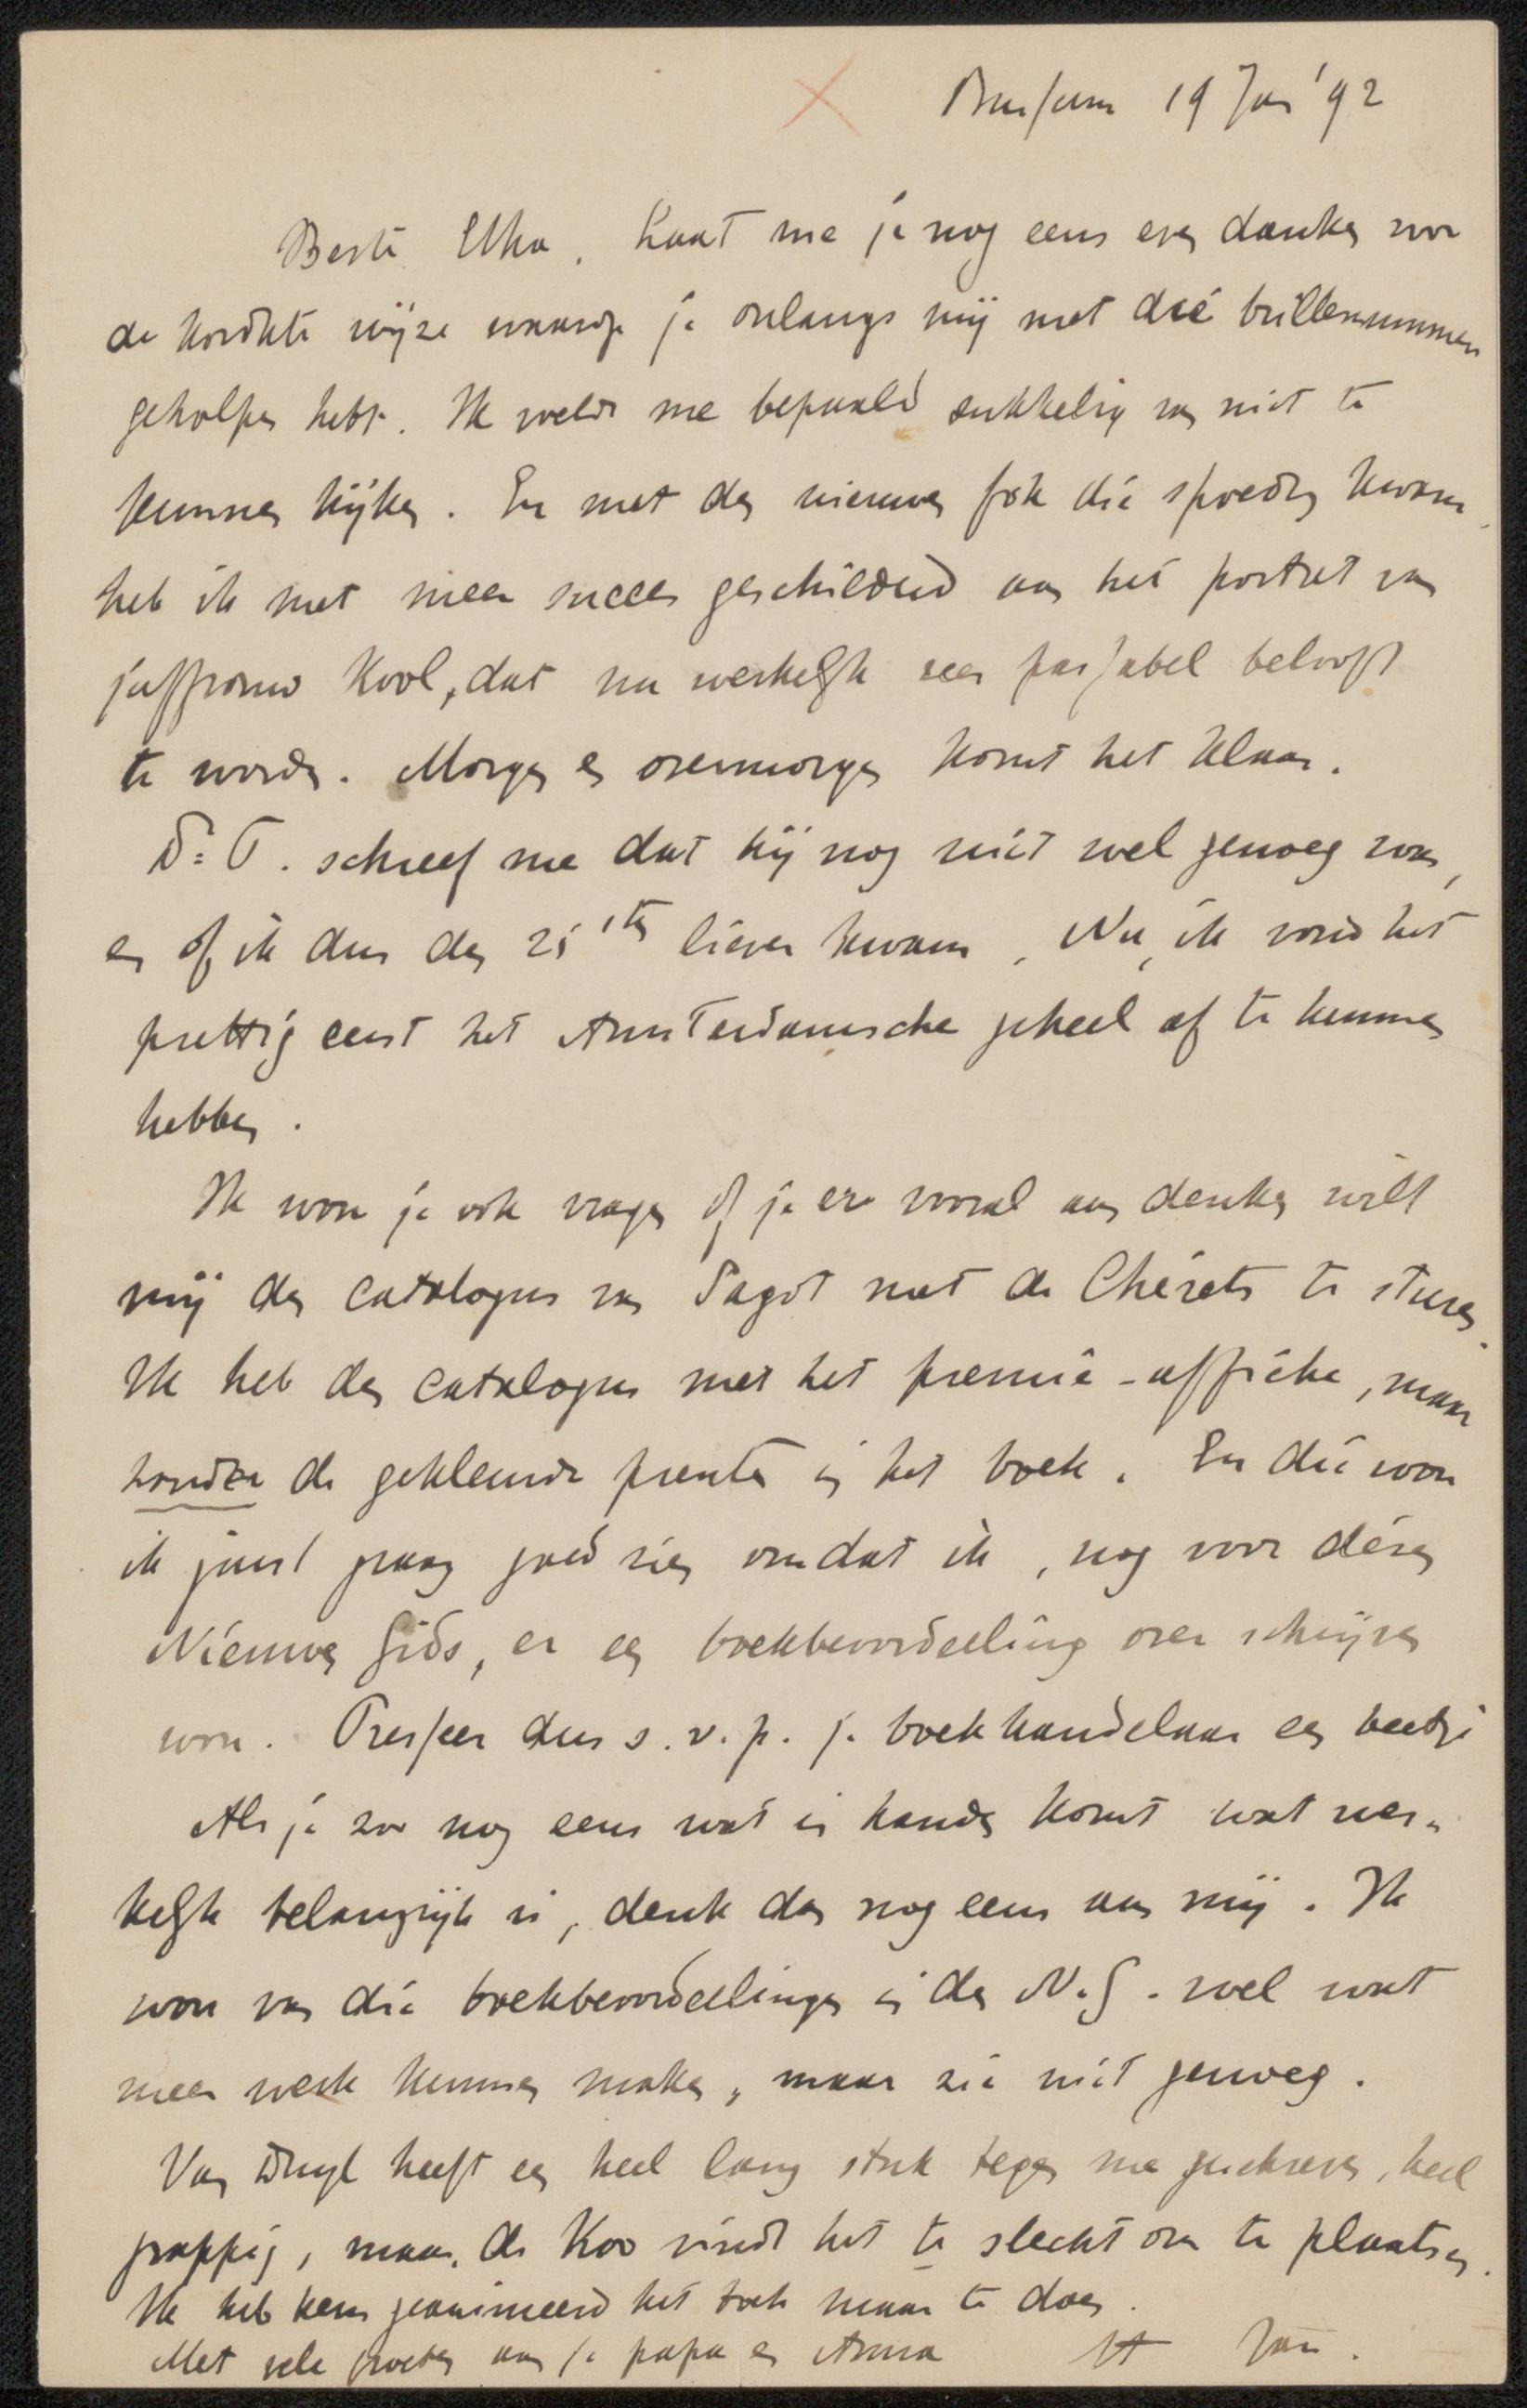 Bussum 19 Jan '92
Beste Utha. Laat me je nog eens even danken voor
de kordate wijze waarop je onlangs mij met dié brillennummers
geholpen hebt. Ik voelde me bepaald sukkelig van niet te
kunnen kijken. En met den nieuwen fok die spoedig kwam
heb ik met meer succes geschilderd aan het portret van
juffrouw Kool, dat nu werkelijk zeer passabel belooft
te worden. Morgen en overmorgen komt het klaar.
Dr. T. schreef me dat hij nog niet wel genoeg was,
en of ik dus den 25sten liever kwam. Nu, ik vond het
prettig eerst het Amsterdamsche geheel af te kunnen
hebben.
Ik wou je ook vragen of je er vooral aan denken wilt
mij den catalogus van Sagot met de Chérets te sturen.
Ik heb den catalogus met het premie-affiche, maar
zonder de gekleurde prenten in het boek. En die wou
ik juist graag goed zien omdat ik, nog voor dézen
Nieuwen Gids, er een boekbeoordeeling over schrijven
wou. Presseer dus s.v.p. je boekhandelaar een beetje
Als je zoo nog eens wat in handen komt wat wer-
kelijk belangrijk is, denk dan nog eens aan mij. Ik
wou van die boekbeoordeelingen in den N.G. wel wat
meer werk kunnen maken, maar zie niet genoeg.
Van Duyl heeft een heel lang stuk tegen me geschreven, heel
grappig, maar de Koo vindt het te slecht om te plaatsen.
Ik heb hem geanimeerd het toch maar te doen.
Met vele groeten aan je papa en Anna  tt Jan.